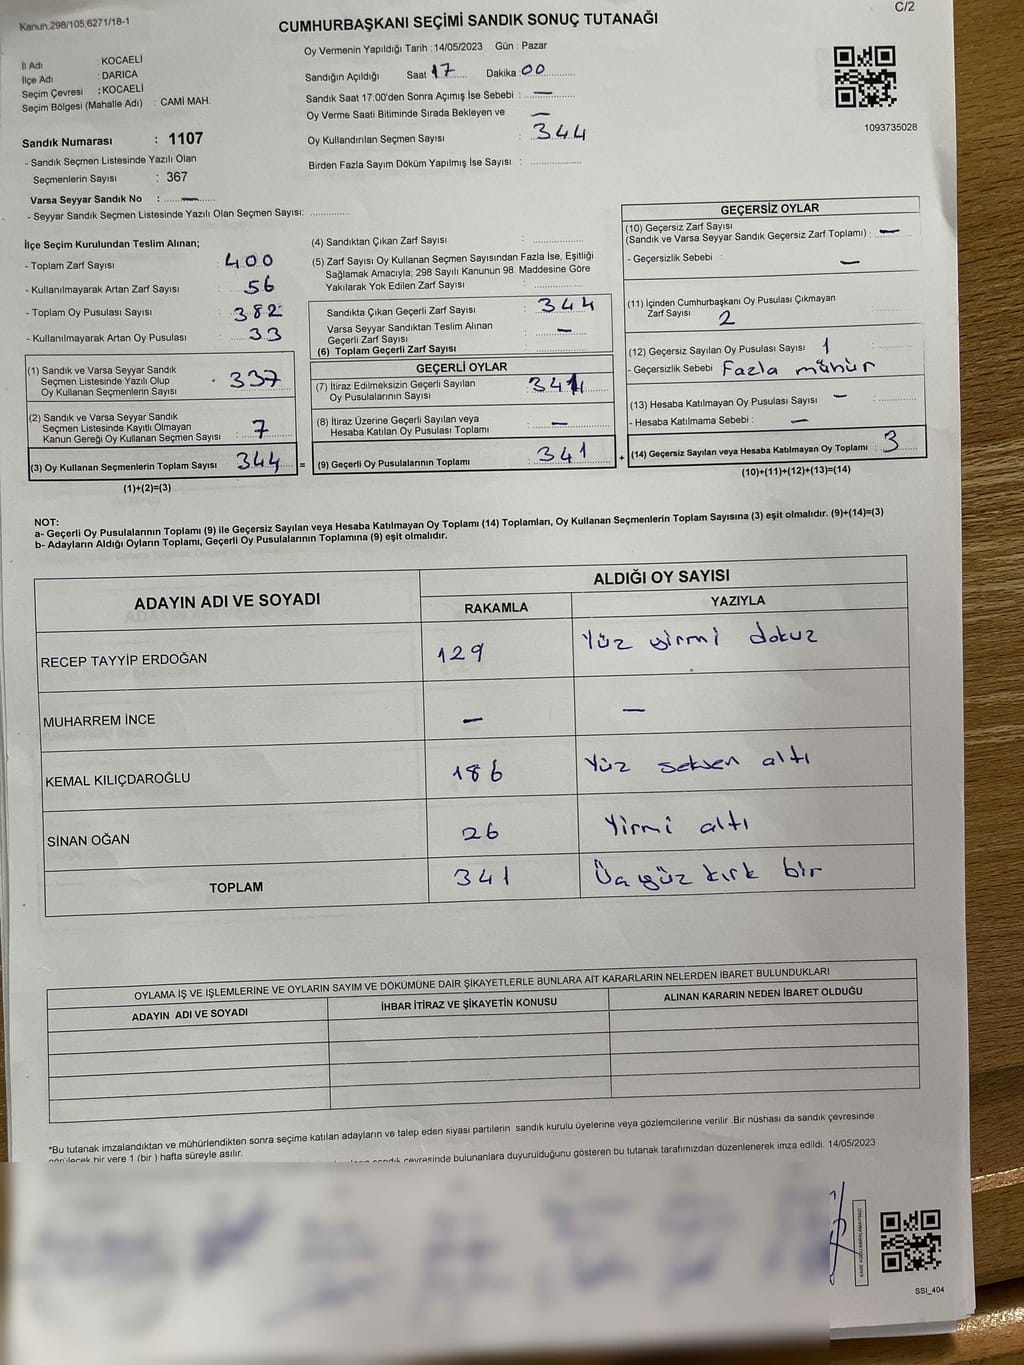 Kanun.298/105;6271/18-1
C/2
CUMHURBAŞKANI SEÇİMİ SANDIK SONUÇ TUTANAĞI
İl Adı : KOCAELİ
İlçe Adı : DARICA
Seçim Çevresi : KOCAELİ
Seçim Bölgesi (Mahalle Adı) : CAMİ MAH.
Sandık Numarası : 1107
- Sandık Seçmen Listesinde Yazılı Olan
Seçmenlerin Sayısı : 367
Varsa Seyyar Sandık No : —
- Seyyar Sandık Seçmen Listesinde Yazılı Olan Seçmen Sayısı:
Oy Vermenin Yapıldığı Tarih : 14/05/2023 Gün : Pazar
Sandığın Açıldığı Saat 17 Dakika : 00
Sandık Saat 17:00'den Sonra Açımış İse Sebebi : —
Oy Verme Saati Bitiminde Sırada Bekleyen ve —
Oy Kullandırılan Seçmen Sayısı : 344
Birden Fazla Sayım Döküm Yapılmış İse Sayısı :
1093735028
İlçe Seçim Kurulundan Teslim Alınan;
- Toplam Zarf Sayısı : 400
- Kullanılmayarak Artan Zarf Sayısı : 56
- Toplam Oy Pusulası Sayısı : 382
- Kullanılmayarak Artan Oy Pusulası : 33
(1) Sandık ve Varsa Seyyar Sandık
Seçmen Listesinde Yazılı Olup
Oy Kullanan Seçmenlerin Sayısı : 337
(2) Sandık ve Varsa Seyyar Sandık
Seçmen Listesinde Kayıtlı Olmayan
Kanun Gereği Oy Kullanan Seçmen Sayısı : 7
(3) Oy Kullanan Seçmenlerin Toplam Sayısı : 344 =
(1)+(2)=(3)
(4) Sandıktan Çıkan Zarf Sayısı :
(5) Zarf Sayısı Oy Kullanan Seçmen Sayısından Fazla İse, Eşitliği
Sağlamak Amacıyla; 298 Sayılı Kanunun 98. Maddesine Göre
Yakılarak Yok Edilen Zarf Sayısı :
Sandıkta Çıkan Geçerli Zarf Sayısı : 344
Varsa Seyyar Sandıktan Teslim Alınan
Geçerli Zarf Sayısı : —
(6) Toplam Geçerli Zarf Sayısı :
GEÇERLİ OYLAR
(7) İtiraz Edilmeksizin Geçerli Sayılan
Oy Pusulalarının Sayısı : 341
(8) İtiraz Üzerine Geçerli Sayılan veya
Hesaba Katılan Oy Pusulası Toplamı : —
(9) Geçerli Oy Pusulalarının Toplamı : 341 +
GEÇERSİZ OYLAR
(10) Geçersiz Zarf Sayısı
(Sandık ve Varsa Seyyar Sandık Geçersiz Zarf Toplamı) : —
- Geçersizlik Sebebi : —
(11) İçinden Cumhurbaşkanı Oy Pusulası Çıkmayan
Zarf Sayısı 2
(12) Geçersiz Sayılan Oy Pusulası Sayısı 1
- Geçersizlik Sebebi Fazla mühür
(13) Hesaba Katılmayan Oy Pusulası Sayısı —
- Hesaba Katılmama Sebebi : —
(14) Geçersiz Sayılan veya Hesaba Katılmayan Oy Toplamı : 3
(10)+(11)+(12)+(13)=(14)
NOT:
a- Geçerli Oy Pusulalarının Toplamı (9) ile Geçersiz Sayılan veya Hesaba Katılmayan Oy Toplamı (14) Toplamları, Oy Kullanan Seçmenlerin Toplam Sayısına (3) eşit olmalıdır. (9)+(14)=(3)
b- Adayların Aldığı Oyların Toplamı, Geçerli Oy Pusulalarının Toplamına (9) eşit olmalıdır.
ADAYIN ADI VE SOYADI
ALDIĞI OY SAYISI
RAKAMLA YAZIYLA
RECEP TAYYİP ERDOĞAN 129 Yüz yirmi dokuz
MUHARREM İNCE — —
KEMAL KILIÇDAROĞLU 186 Yüz seksen altı
SİNAN OĞAN 26 Yirmi altı
TOPLAM 341 Üçyüz kırk bir
OYLAMA İŞ VE İŞLEMLERİNE VE OYLARIN SAYIM VE DÖKÜMÜNE DAİR ŞİKAYETLERLE BUNLARA AİT KARARLARIN NELERDEN İBARET BULUNDUKLARI
ADAYIN ADI VE SOYADI İHBAR İTİRAZ VE ŞİKAYETİN KONUSU ALINAN KARARIN NEDEN İBARET OLDUĞU
*Bu tutanak imzalandıktan ve mühürlendikten sonra seçime katılan adayların ve talep eden siyasi partilerin sandık kurulu üyelerine veya gözlemcilerine verilir .Bir nüshası da sandık çevresinde
görülecek bir yere 1 (bir ) hafta süreyle asılır.
sandık çevresinde bulunanlara duyurulduğunu gösteren bu tutanak tarafımızdan düzenlenerek imza edildi. 14/05/2023
KARE KODU KARALAMAYINIZ!
SSI_404